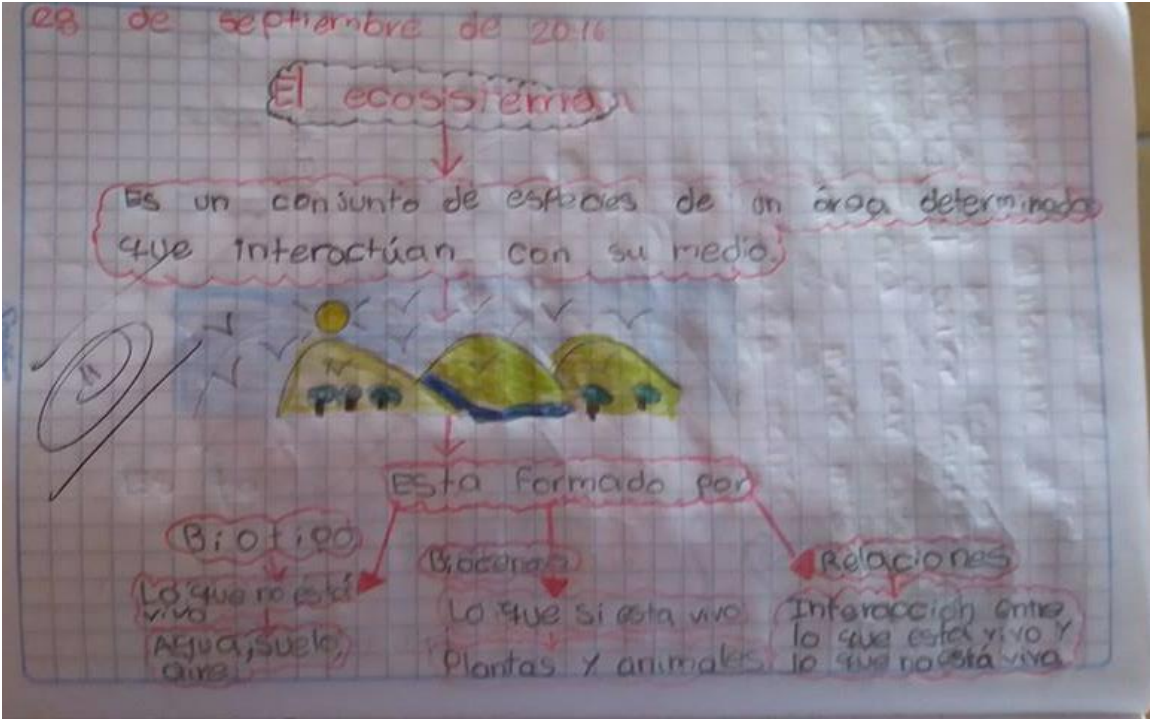 28 de septiembre de 2016
El ecosistema
Es un conjunto de especies de un área determinada
que interactúan con su medio.
Esta formado por
Biotipo
Lo que no está
vivo
Agua, suelo,
aire
Lo que si esta vivo
Plantas y animales
Relaciones
Interaccion entre
lo que está vivo y
lo que no está vivo